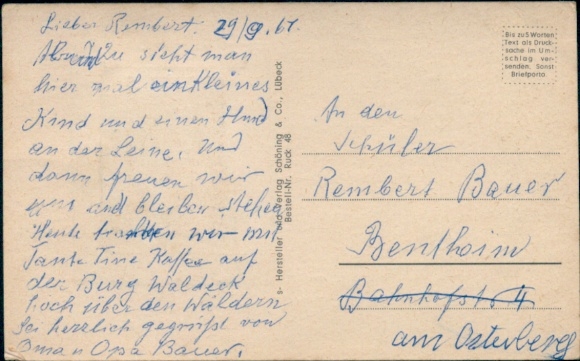 Lieber Rembert. 29/9. 61.
Ab und zu sieht man
hier mal ein kleines
Kind und einen Hund
an der Leine. Und
dann freuen wir
uns und bleiben stehen
Heute tranken wir mit
Tante Tine Kaffee auf
der Burg Waldeck
hoch über den Wäldern
Sei herzlich gegrüßt von
Oma u Opa Bauer.
Hersteller und Verlag Schöning & Co., Lübeck
Bestell-Nr. Ruck 48
Bis zu 5 Worten
Text als Druck-
sache im Um-
schlag ver-
senden. Sonst
Briefporto.
An den
Schüler
Rembert Bauer
Bentheim
Bahnhofstr 4
am Osterberg